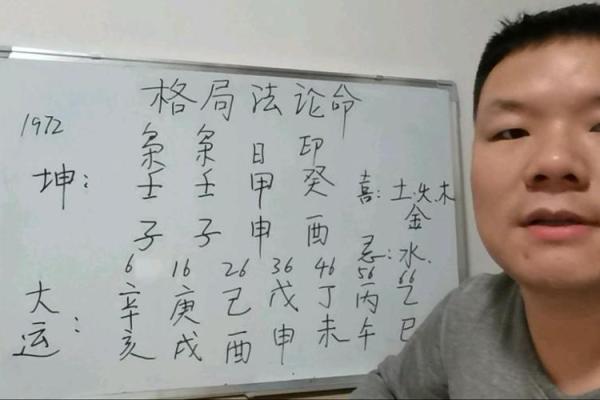 格局法论命
1972
枭 枭 日 印
坤: 壬 壬 甲 癸
子 子 申 酉
喜: 土.火.木
金
忌: 水.
6 16 26 36 46 56 66
大 辛 庚 己 戊 丁 丙 乙
运: 亥 戌 酉 申 未 午 巳